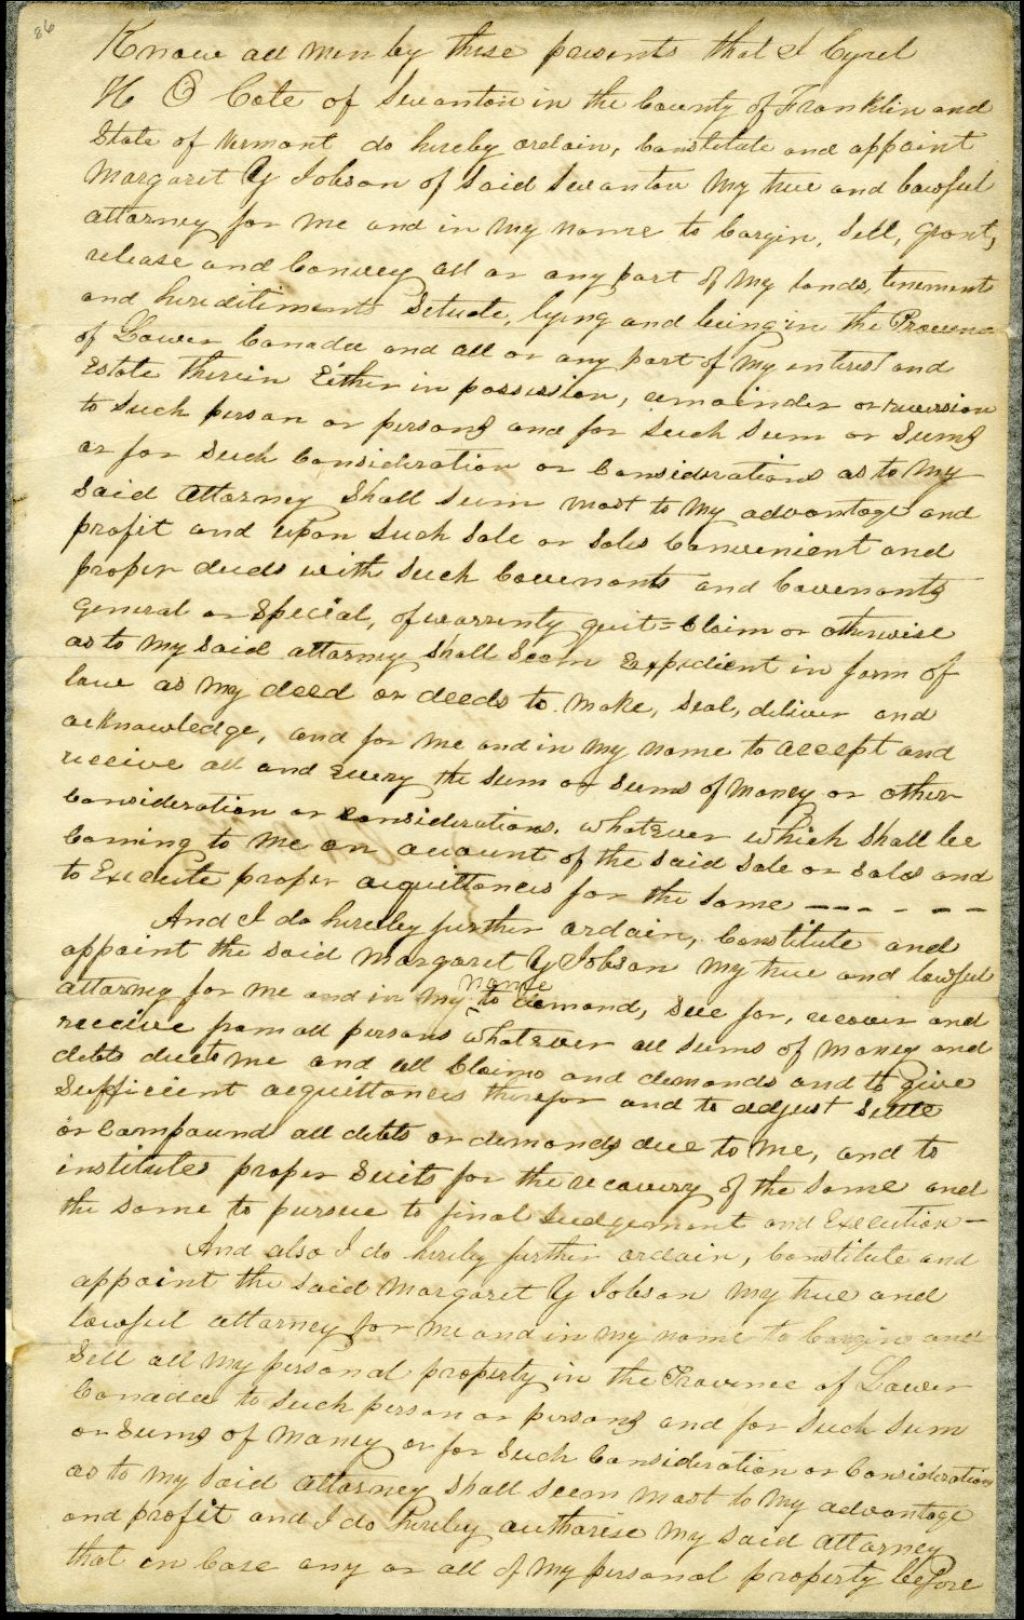 86
Know all men by these presents that I Cyrel
H O Cote of Swanton in the County of Franklin and
State of Vermont do hereby ordain, Constitute and appoint
Margaret Y Jobson of Said Swanton My true and lawful
attorney for me and in my name to bargin, Sell, grant,
release and Convey all or any part of my lands, tenements
and hereditiments Setuate, lying and being in the Province
of Lower Canada and all or any part of my interest and
Estate therein Either in possession, remainder or reversion
to Such person or persons and for Such Sum or Sums
or for Such Consideration or Considerations as to My
Said attorney Shall Seem most to My advantage and
profit and upon Such Sale or Sales Convenient and
proper deeds with Such Covenants and Covenants
General or Special, of warrenty quit=Claim or otherwise
as to My Said attorney Shall Seem Expedient in form of
law as My deed or deeds to make, Seal, deliver and
acknowledge, and for me and in my name to accept and
receive all and Every the Sum or Sums of Money or other
Consideration or Considerations. whatever which Shall be
Coming to Me on account of the Said Sale or Sales and
to Execute proper acquittances for the Same – – – – –
And I do hereby further ordain, Constitute and
appoint the Said Margaret Y Jobson My true and lawful
attorney for me and in My name to demand, Sue for, recover and
receive from all persons whatever all Sums of Money and
debts due to me and all Claims and demands and to give
Sufficient acquittances therefor and to adjust Settle
or Compound all debts or demands due to me, and to
institutes proper Suits for the recovery of the Same and
the Same to pursue to final Judgement and Execution –
And also I do hereby further ordain, Constitute and
appoint the Said Margaret Y Jobson My true and
lawful attorney for me and in my name to bargin and
Sell all My personal property in the Province of Lower
Canada to Such person or persons and for Such Sum
or Sums of Money or for Such Consideration or Considerations
as to My Said attorney Shall Seem Most to My advantage
and profit and I do hereby authorise My Said attorney
that in Case any or all of My personal property before